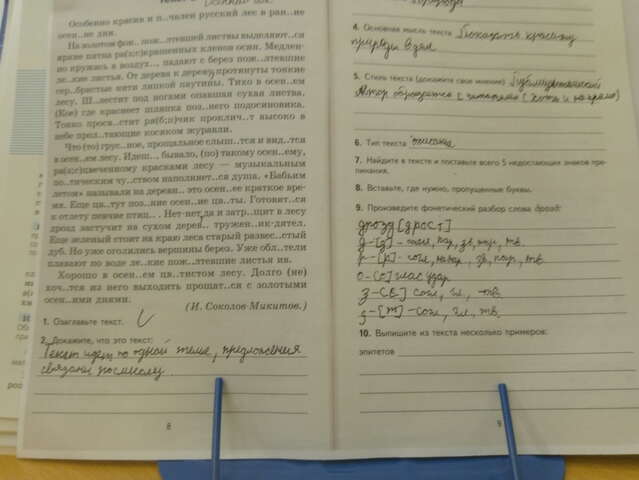 Особенно красив и п..чален русский лес в ран..ие
осен..ие дни.
На золотом фон.. пож..лтевшей листвы выделяют..ся
яркие пятна ра(з,с)крашенных кленов осин. Медлен-
но кружась в воздух.., падают с берез пож..лтевшие
ле..кие листья. От дерева к дереву протянуты тонкие
сер..бристые нити лишкой паутины. Тихо в осен..ем
лесу. Ш..лестит под ногами опавшая сухая листва,
(Кое) где краснеет шляпка поз..него подосиновика.
Тонко просв..стит ря(б,п)чик проклич..т высоко в
небе прол..тающие косяком журавли.
Что (то) грус..ное, прощальное слыш..тся и вид..тся
в осен..ем лесу. Идеш.., бывало, (по) такому осен..ему,
ра(з,с)цвеченному красками лесу — музыкальным
по..тическим чу..ством наполняет..ся душа. «Бабьим
летом» называли на деревн.. это осен..ее краткое вре-
мя. Еще цв..тут поз..ние осен..ие цв..ты. Готовят..ся
к отлету певчие птиц.. . Нет-нет да и затр..щит в лесу
дрозд застучит на сухом дерев.. тружен..ик-дятел.
Еще зеленый стоит на краю леса старый развес..стый
дуб. Но уже оголились вершины берез. Уже обл..тели
плавают по воде ле..кие пож..лтевшие листья ив.
Хорошо в осен..ем цв..тистом лесу. Долго (не)
хоч..тся из него выходить прощат..ся с золотыми
осен..ими днями.
(И. Соколов-Микитов.)
1. Озаглавьте текст.
2. Докажите, что это текст:
Текст идет по одной теме, предложения
связаны по смыслу.
8
4. Основная мысль текста Показать красоту
природы
5. Стиль текста (докажите свое мнение) Публицистический
Автор обращается к читателю
6. Тип текста описание
7. Найдите в тексте и поставьте всего 5 недостающих знаков пре-
пинания.
8. Вставьте, где нужно, пропущенные буквы.
9. Произведите фонетический разбор слова дрозд:
дрозд [дрост]
д-[д]-согл, пар, зв, пар, тв.
р-[р]-согл, непар, зв, пар, тв.
о-[о] глас удар
з-[с] согл, гл, тв.
д-[т]-согл, гл, тв.
10. Выпишите из текста несколько примеров:
эпитетов
9